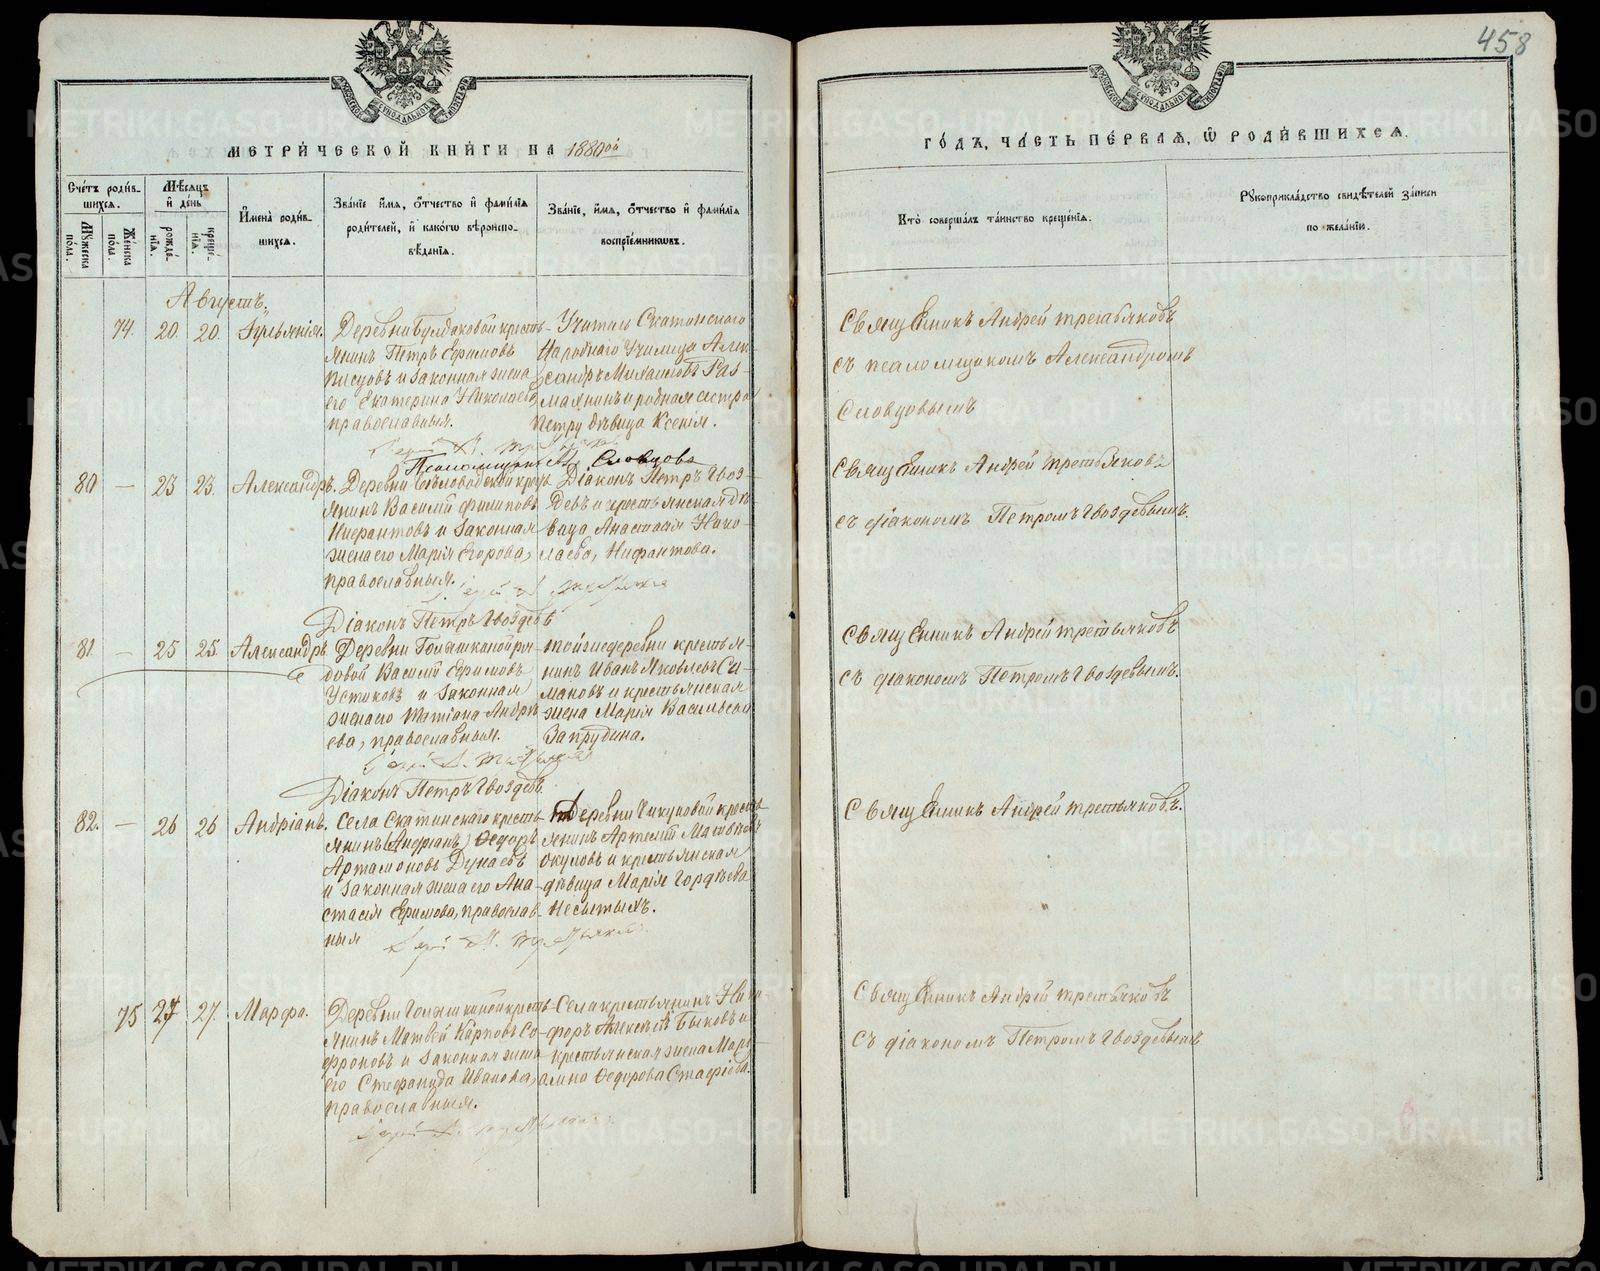 458
МЕТРИ́ЧЕСКОЙ КНИ́ГИ НА 1880ой
ГО́ДЪ, ЧА́СТЬ ПЕ́РВАѦ, Ѡ҆ РОДИ́ВШИХСѦ.
Сче́тъ роди́в-
шихся.
Му́жеска по́ла.
Же́нска по́ла.
Мѣ́сяцъ и҆ де́нь
рожде́нїя.
креще́нїя.
И҆мена̀ роди́в-
шихся.
Зва́нїе и҆́мя, ѻ҆́тчество и҆ фами́лїя
роди́телей, и҆ како́гѡ вѣроиспо-
вѣ́данїя.
Зва́нїе, и҆́мя, ѻ҆́тчество и҆ фами́лїя
воспрїе́мникѡвъ.
Кто̀ соверша́лъ та́инство креще́нїя.
Рꙋкоприкла́дство свидѣ́телей за́писи
по жела́нїю.
Августъ.
74. 20. 20.
Деревни Булдаковой кресть-
янинъ Петръ Ефимовъ
Писцовъ и законная жена
его Екатерина Николаева,
православныя.
Учитель Скатинскаго
Народнаго Училища Алек-
сандръ Михаиловъ Раз-
махнинъ и родная сестра
Петру дѣвица Ксенія.
Священникъ Андрей Третьяковъ
съ псаломщикомъ Александромъ
Словцовымъ
Псаломщикъ А. Словцовъ
80 — 23 23. Александръ.
янинъ Василій Филиповъ
Нифантовъ и законная
жена его Марія Егорова,
православныя.
Діаконъ Петръ Гвоз-
девъ и крестьянская дѣ-
вица Анастасія Нико-
лаева, Нифантова.
Священникъ Андрей Третьяковъ
съ діакономъ Петромъ Гвоздевымъ.
Діаконъ Петръ Гвоздевъ
81. — 25 25. Александръ.
Василій Ефимовъ
Устюговъ и законная
жена его Татіана Андре-
ева, православныя.
той же деревни крестья-
нинъ Иванъ Яковлевъ Си-
мановъ и крестьянская
жена Марія Васильева
Запрудина.
Священникъ Андрей Третьяковъ
съ діакономъ Петромъ Гвоздевымъ.
Діаконъ Петръ Гвоздевъ
82. — 26 26 Андріанъ.
Села Скатинскаго кресть-
янинъ (Андріанъ) Ѳедоръ
Артамоновъ Дунаевъ
и законная жена его Ана-
стасія Ефимова, православ-
ныя
Деревни Чикуновой кресть-
янинъ Артемій Матвѣевъ
Окуловъ и крестьянская
дѣвица Марія Гордѣева
Несытыхъ.
Священникъ Андрей Третьяковъ.
75 27 27. Марфа.
янинъ Матвей Карповъ Со-
фроновъ и законная жена
его Стефанида Иванова,
православныя.
Села крестьянинъ Ники-
форъ Алексѣевъ Быковъ и
крестьянская жена Мари-
амна Ѳедорова
Священникъ Андрей Третьяковъ
съ діакономъ Петромъ Гвоздевымъ
METRIKI.GASO-URAL.RU